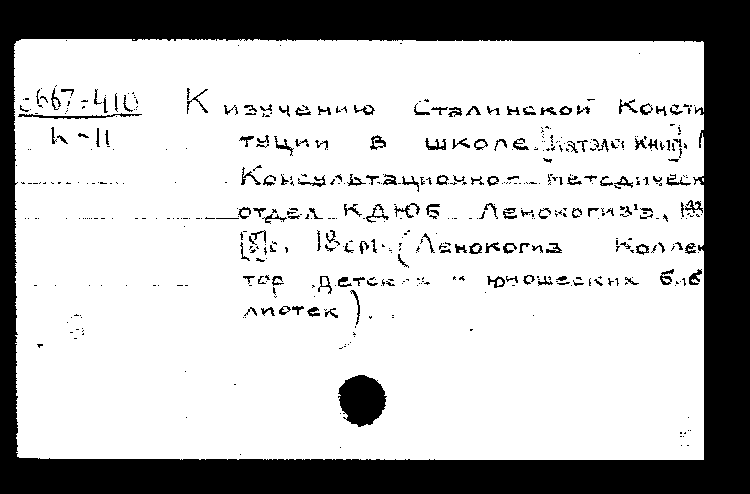 с667:410 К изучению Сталинской Консти
к-11 туции в школе. [Каталог книг].
Консультационно-методическ
отдел КДЮБ Ленокогиз'а, 193
[8]с. 18 cm. (Ленокогиз Коллек
тор детских и юношеских биб
лиотек).